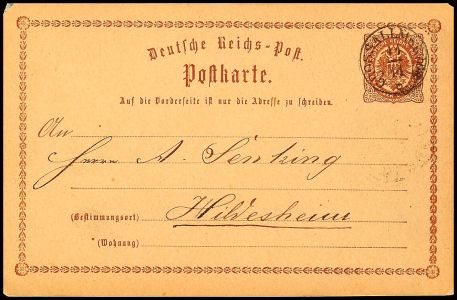 Deutsche Reichs-Post.
Postkarte.
Auf die Vorderseite ist nur die Adresse zu schreiben.
An
Herrn A. Senking
(Bestimmungsort) Hildesheim
(Wohnung)